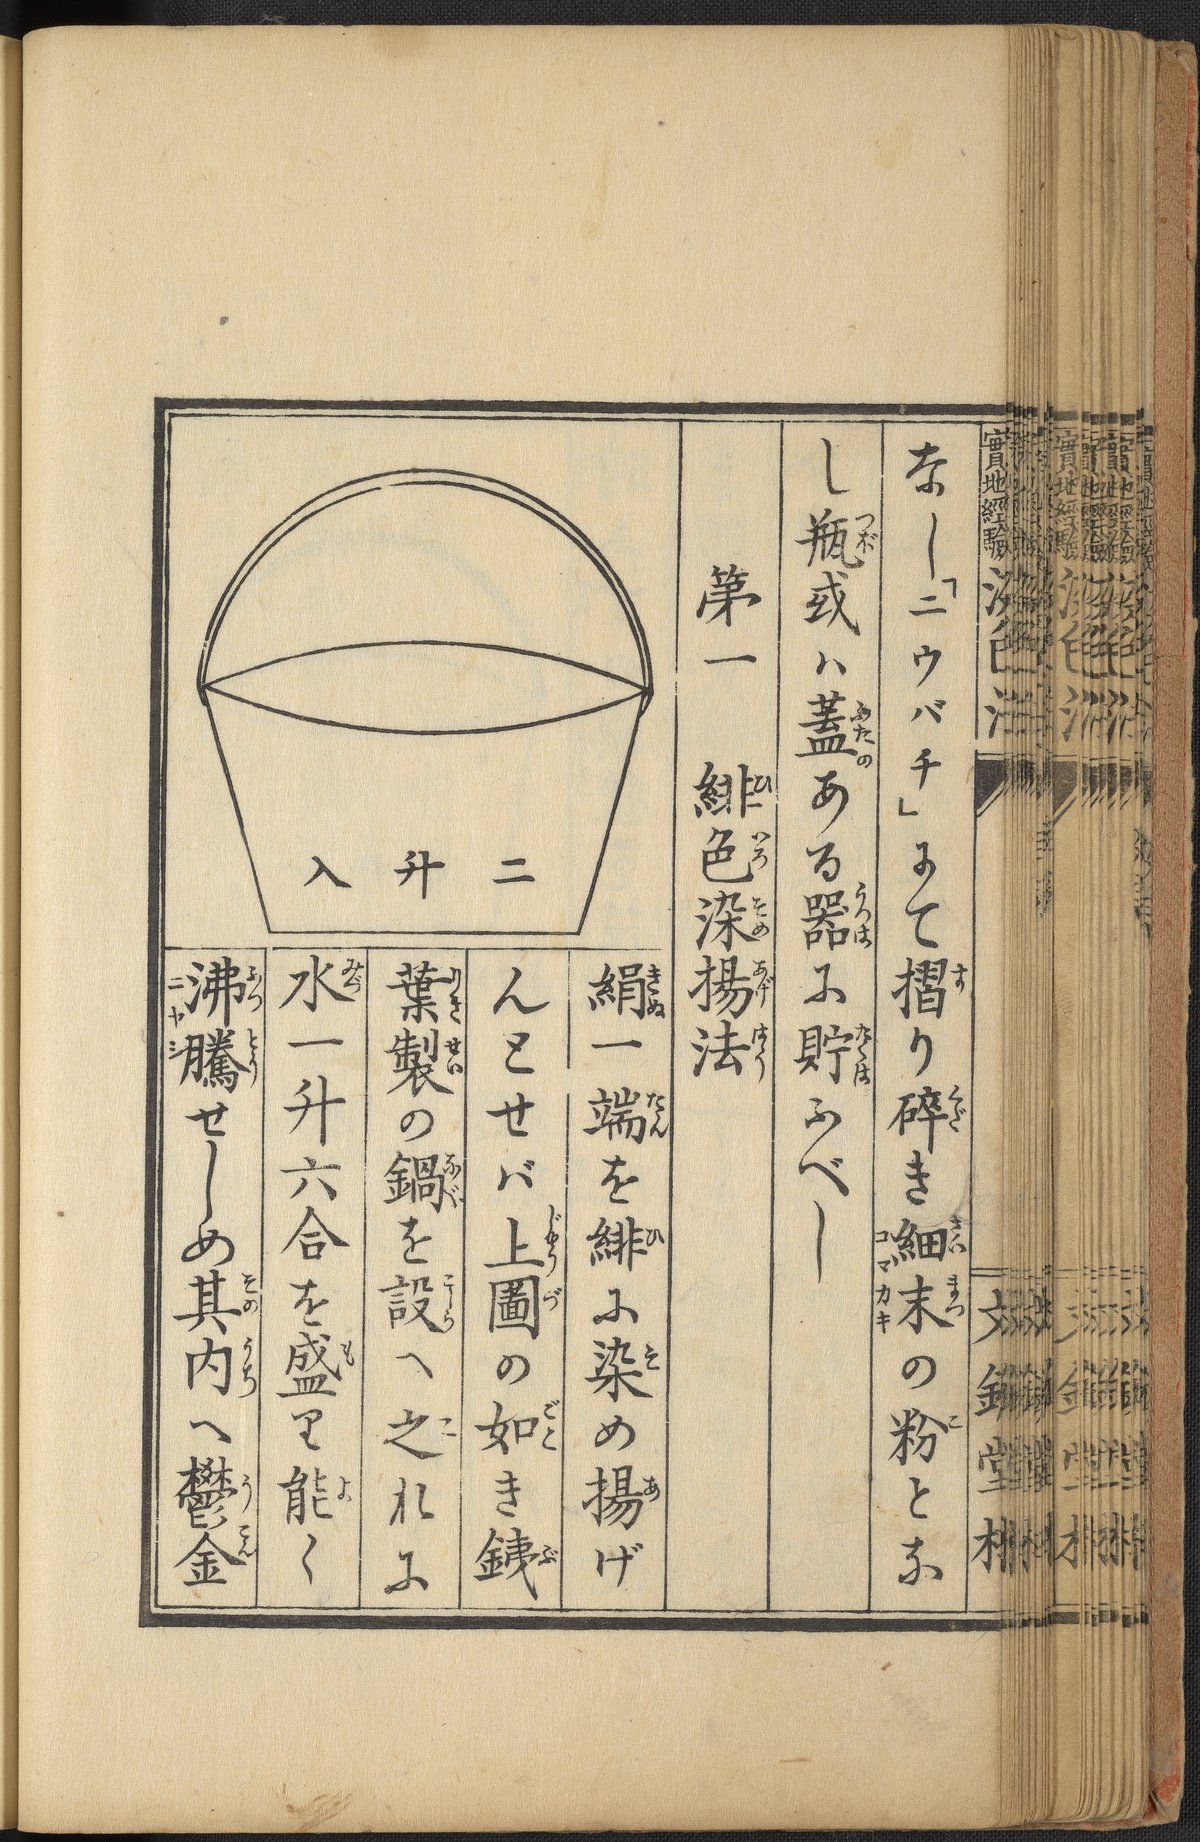 なし「ニウバチ」にて摺り碎き細末の粉とな
し瓶或ハ蓋ある器に貯ふべし
第一 緋色染揚法
絹一端を緋に染め揚げ
んとせバ上圖の如き銕
葉製の鍋を設へ之れに
水一升六合を盛り能く
沸騰せしめ其内へ鬱金
二升入
實地經驗 染色法
文錦堂梓